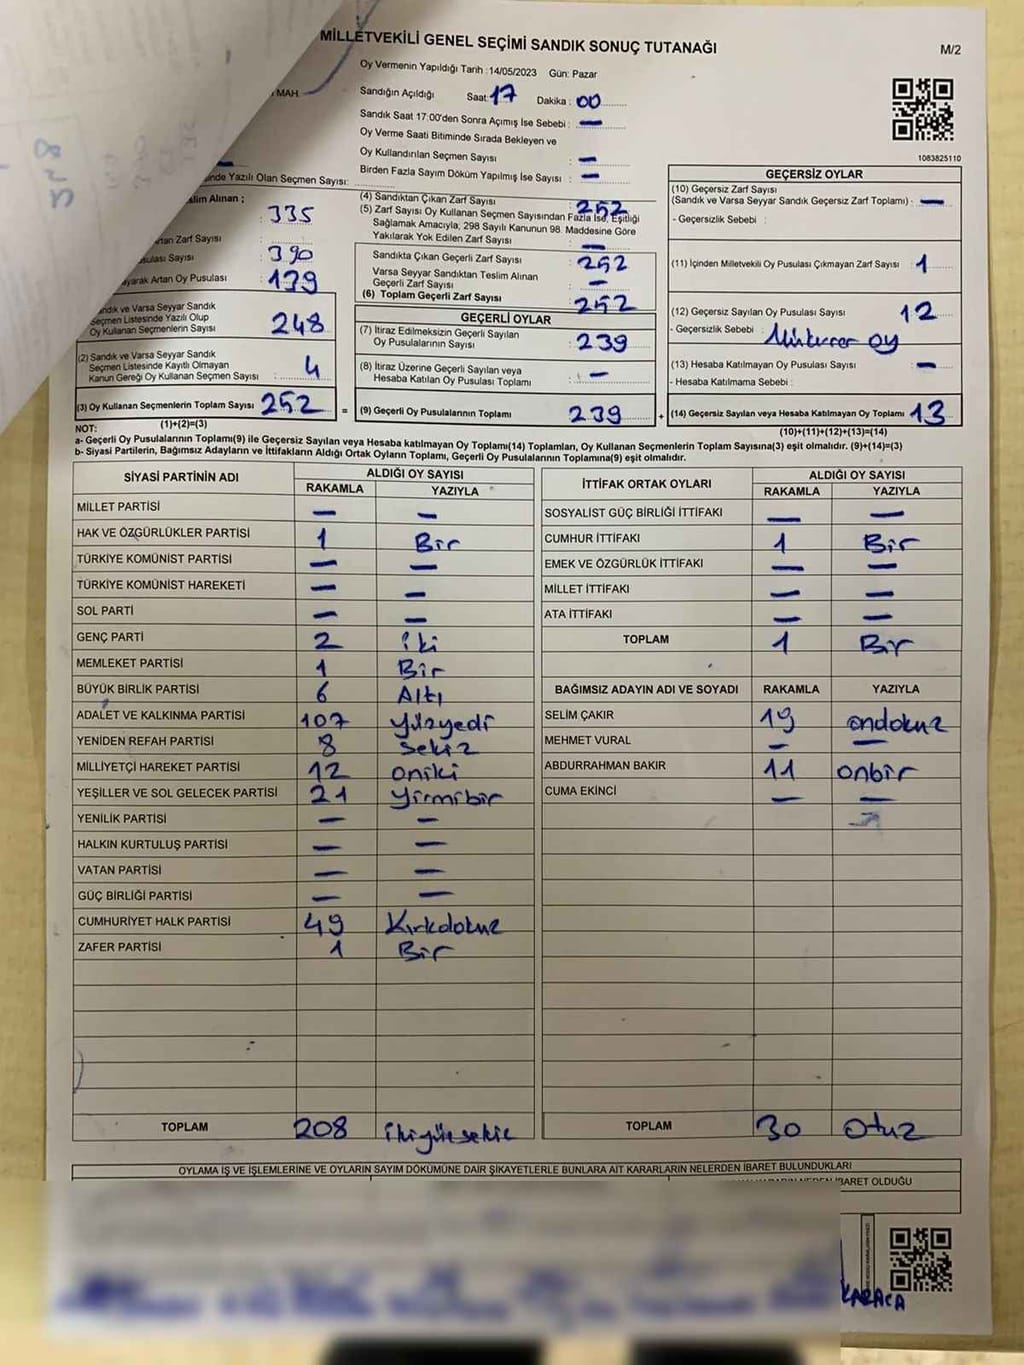 MİLLETVEKİLİ GENEL SEÇİMİ SANDIK SONUÇ TUTANAĞI
M/2
Oy Vermenin Yapıldığı Tarih :14/05/2023 Gün: Pazar
MAH.
Sandığın Açıldığı Saat: 17 Dakika : 00
Sandık Saat 17:00'den Sonra Açımış İse Sebebi : —
Oy Verme Saati Bitiminde Sırada Bekleyen ve
Oy Kullandırılan Seçmen Sayısı : —
Birden Fazla Sayım Döküm Yapılmış İse Sayısı : —
1083825110
Yazılı Olan Seçmen Sayısı:
Alınan ;
: 335
Zarf Sayısı
Sayısı : 390
Artan Oy Pusulası : 139
Sandık ve Varsa Seyyar Sandık
Seçmen Listesinde Yazılı Olup
Oy Kullanan Seçmenlerin Sayısı 248
(2) Sandık ve Varsa Seyyar Sandık
Seçmen Listesinde Kayıtlı Olmayan
Kanun Gereği Oy Kullanan Seçmen Sayısı : 4
(3) Oy Kullanan Seçmenlerin Toplam Sayısı 252
(1)+(2)=(3)
(4) Sandıktan Çıkan Zarf Sayısı : 252
(5) Zarf Sayısı Oy Kullanan Seçmen Sayısından Fazla İse, Eşitliği
Sağlamak Amacıyla, 298 Sayılı Kanunun 98. Maddesine Göre
Yakılarak Yok Edilen Zarf Sayısı : —
Sandıkta Çıkan Geçerli Zarf Sayısı : 252
Varsa Seyyar Sandıktan Teslim Alınan
Geçerli Zarf Sayısı : —
(6) Toplam Geçerli Zarf Sayısı : 252
GEÇERLİ OYLAR
(7) İtiraz Edilmeksizin Geçerli Sayılan
Oy Pusulalarının Sayısı : 239
(8) İtiraz Üzerine Geçerli Sayılan veya
Hesaba Katılan Oy Pusulası Toplamı : —
= (9) Geçerli Oy Pusulalarının Toplamı 239
GEÇERSİZ OYLAR
(10) Geçersiz Zarf Sayısı
(Sandık ve Varsa Seyyar Sandık Geçersiz Zarf Toplamı) : —
- Geçersizlik Sebebi :
(11) İçinden Milletvekili Oy Pusulası Çıkmayan Zarf Sayısı : 1
(12) Geçersiz Sayılan Oy Pusulası Sayısı : 12
- Geçersizlik Sebebi : oy
(13) Hesaba Katılmayan Oy Pusulası Sayısı : —
- Hesaba Katılmama Sebebi :
+ (14) Geçersiz Sayılan veya Hesaba Katılmayan Oy Toplamı 13
(10)+(11)+(12)+(13)=(14)
NOT:
a- Geçerli Oy Pusulalarının Toplamı(9) ile Geçersiz Sayılan veya Hesaba katılmayan Oy Toplamı(14) Toplamları, Oy Kullanan Seçmenlerin Toplam Sayısına(3) eşit olmalıdır. (9)+(14)=(3)
b- Siyasi Partilerin, Bağımsız Adayların ve İttifakların Aldığı Ortak Oyların Toplamı, Geçerli Oy Pusulalarının Toplamına(9) eşit olmalıdır.
SİYASİ PARTİNİN ADI ALDIĞI OY SAYISI
RAKAMLA YAZIYLA
MİLLET PARTİSİ — —
HAK VE ÖZGÜRLÜKLER PARTİSİ 1 Bir
TÜRKİYE KOMÜNİST PARTİSİ — —
TÜRKİYE KOMÜNİST HAREKETİ — —
SOL PARTİ — —
GENÇ PARTİ 2 iki
MEMLEKET PARTİSİ 1 Bir
BÜYÜK BİRLİK PARTİSİ 6 Altı
ADALET VE KALKINMA PARTİSİ 107 yüzyedi
YENİDEN REFAH PARTİSİ 8 sekiz
MİLLİYETÇİ HAREKET PARTİSİ 12 oniki
YEŞİLLER VE SOL GELECEK PARTİSİ 21 yirmibir
YENİLİK PARTİSİ — —
HALKIN KURTULUŞ PARTİSİ — —
VATAN PARTİSİ — —
GÜÇ BİRLİĞİ PARTİSİ — —
CUMHURİYET HALK PARTİSİ 49 Kırkdokuz
ZAFER PARTİSİ 1 Bir
TOPLAM 208 ikiyüzsekiz
İTTİFAK ORTAK OYLARI ALDIĞI OY SAYISI
RAKAMLA YAZIYLA
SOSYALİST GÜÇ BİRLİĞİ İTTİFAKI — —
CUMHUR İTTİFAKI 1 Bir
EMEK VE ÖZGÜRLÜK İTTİFAKI — —
MİLLET İTTİFAKI — —
ATA İTTİFAKI — —
TOPLAM 1 Bir
BAĞIMSIZ ADAYIN ADI VE SOYADI RAKAMLA YAZIYLA
SELİM ÇAKIR 19 ondokuz
MEHMET VURAL — —
ABDURRAHMAN BAKIR 11 onbir
CUMA EKİNCİ — —
TOPLAM 30 otuz
OYLAMA İŞ VE İŞLEMLERİNE VE OYLARIN SAYIM DÖKÜMÜNE DAİR ŞİKAYETLERLE BUNLARA AİT KARARLARIN NELERDEN İBARET BULUNDUKLARI
İBARET OLDUĞU
KARACA